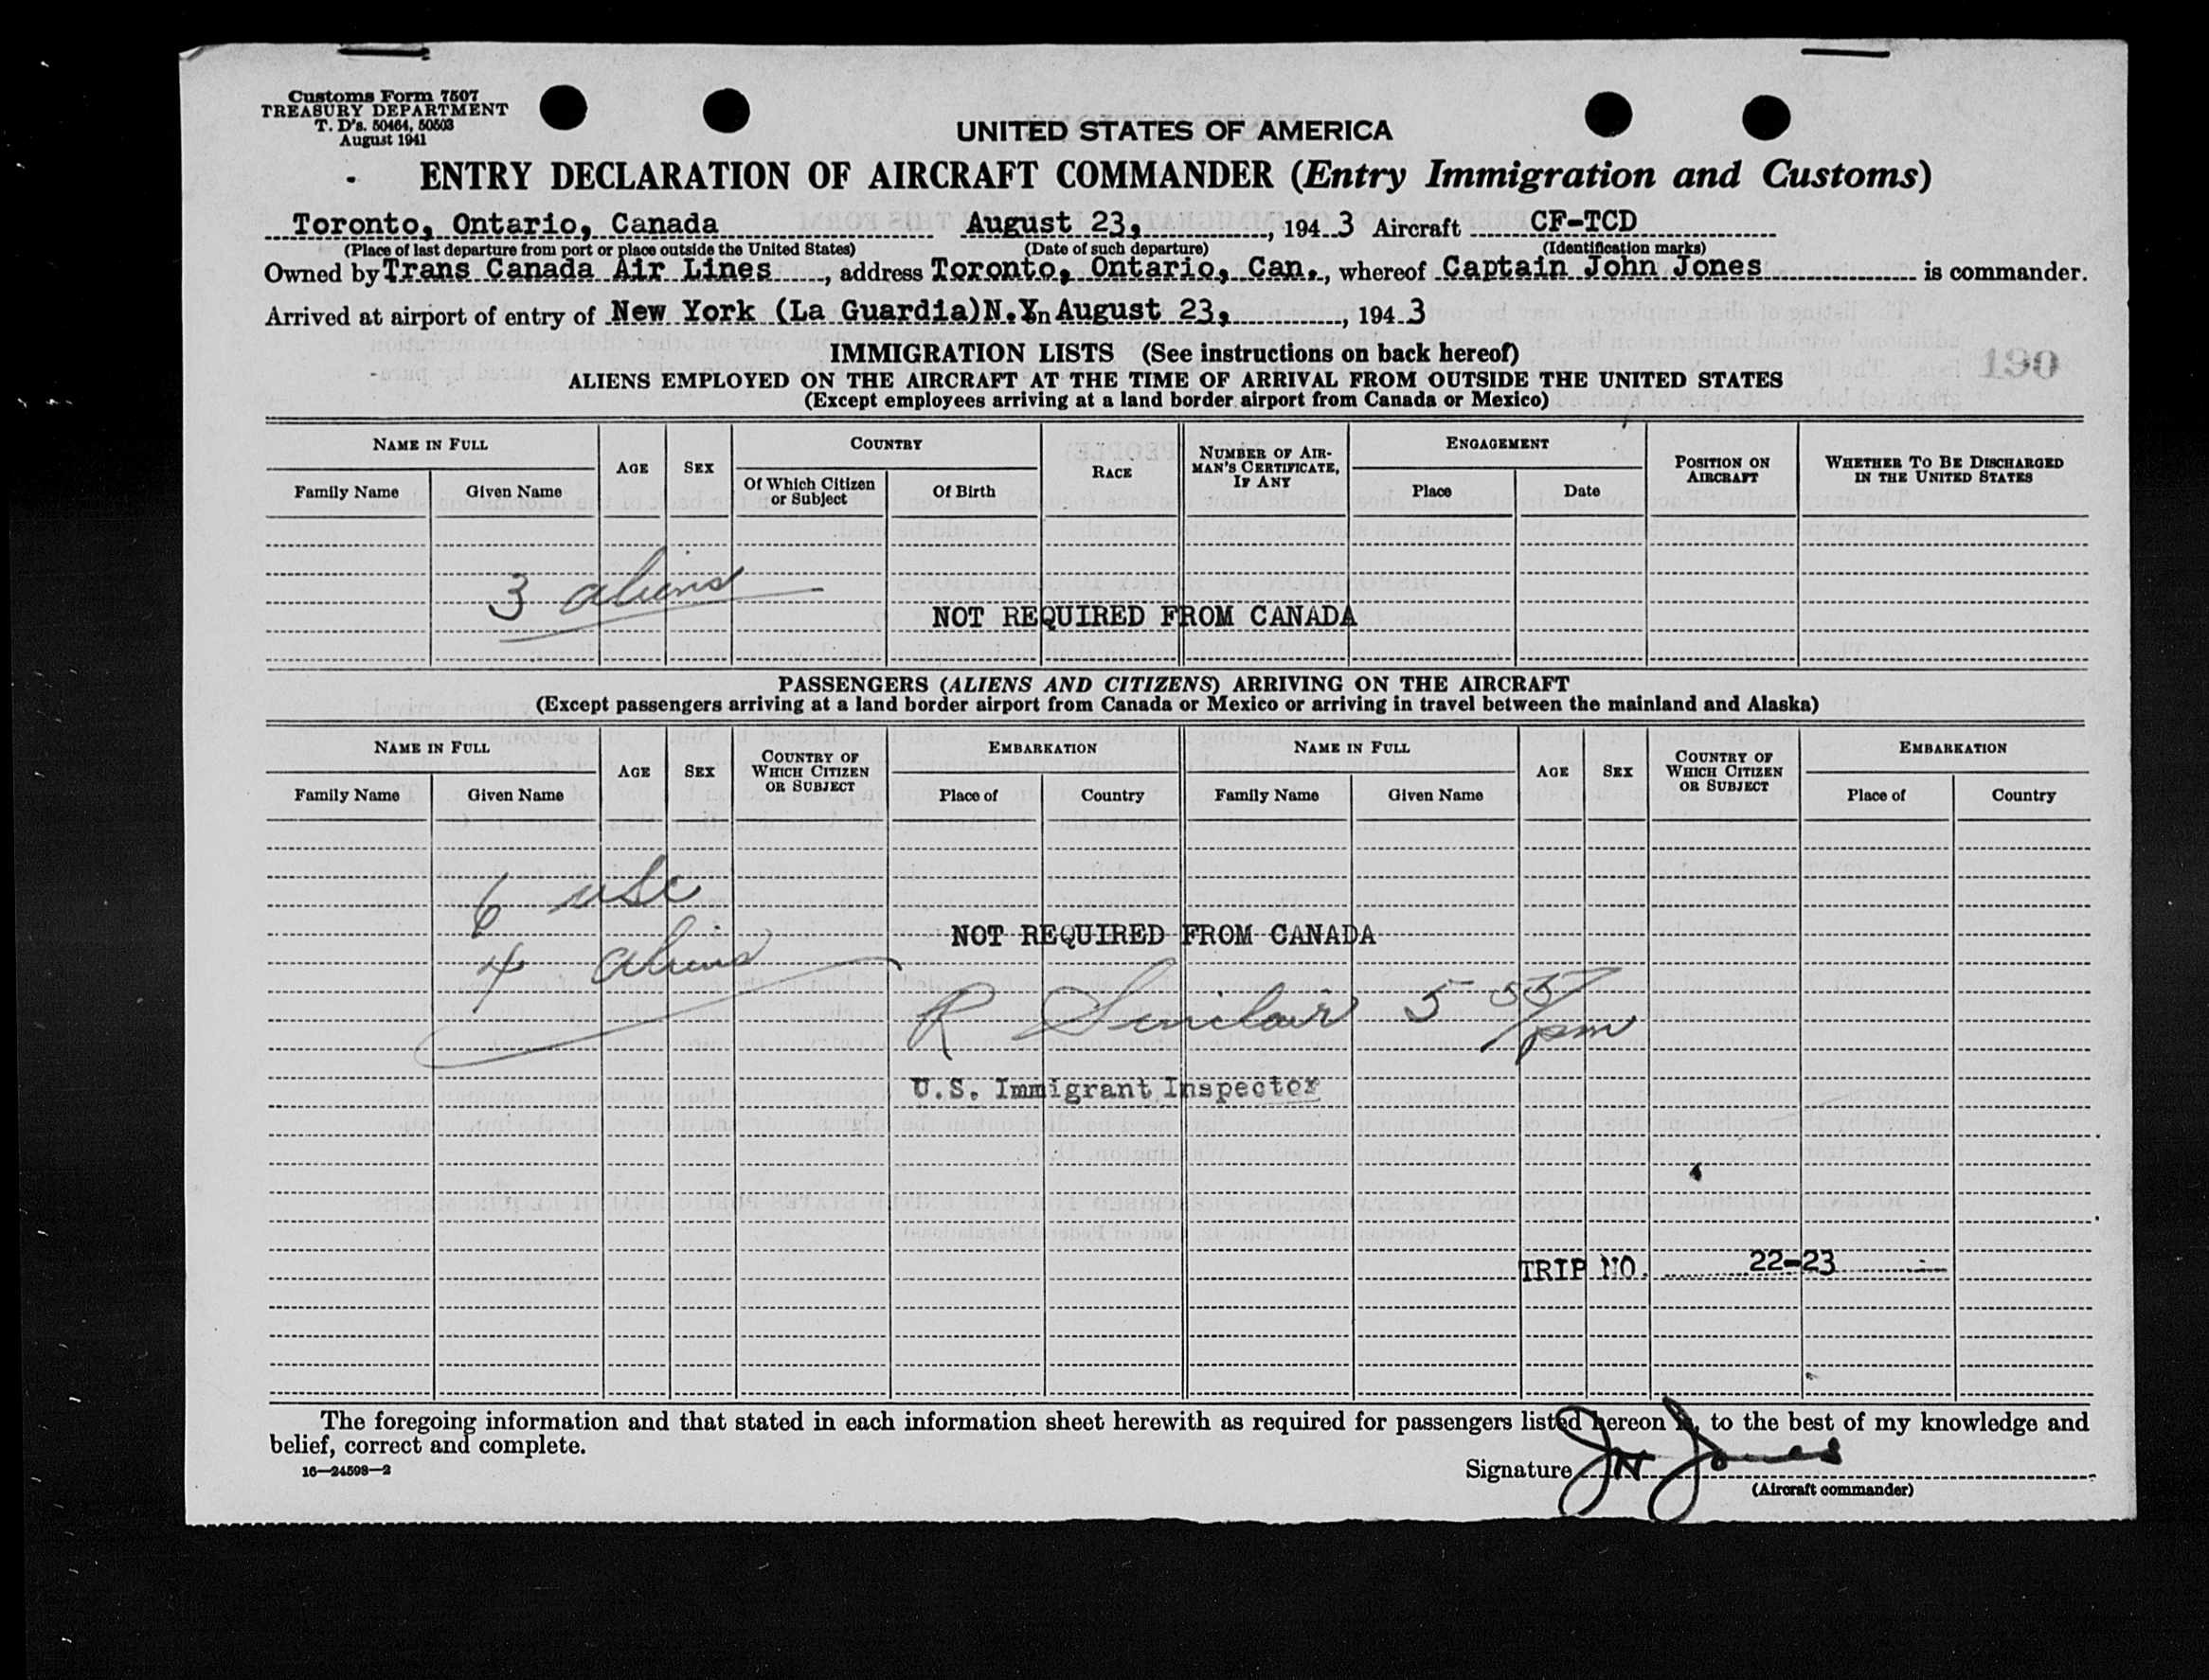 Customs Form 7507
TREASURY DEPARTMENT
T. D's. 50464, 50503
August 1941
UNITED STATES OF AMERICA
ENTRY DECLARATION OF AIRCRAFT COMMANDER (Entry Immigration and Customs)
Toronto, Ontario, Canada August 23, , 194 3 Aircraft CF-TCD
(Place of last departure from port or place outside the United States) (Date of such departure) (Identification marks)
Owned by Trans Canada Air Lines , address Toronto, Ontario, Can. , whereof Captain John Jones is commander.
Arrived at airport of entry of New York (La Guardia)N.Y. on August 23, , 194 3
IMMIGRATION LISTS (See instructions on back hereof)
190
ALIENS EMPLOYED ON THE AIRCRAFT AT THE TIME OF ARRIVAL FROM OUTSIDE THE UNITED STATES
(Except employees arriving at a land border airport from Canada or Mexico)
NAME IN FULL AGE SEX COUNTRY RACE NUMBER OF AIRMAN'S CERTIFICATE, IF ANY ENGAGEMENT POSITION ON AIRCRAFT WHETHER TO BE DISCHARGED IN THE UNITED STATES
Family Name Given Name Of Which Citizen or Subject Of Birth Place Date
3 aliens
NOT REQUIRED FROM CANADA
PASSENGERS (ALIENS AND CITIZENS) ARRIVING ON THE AIRCRAFT
(Except passengers arriving at a land border airport from Canada or Mexico or arriving in travel between the mainland and Alaska)
NAME IN FULL AGE SEX COUNTRY OF WHICH CITIZEN OR SUBJECT EMBARKATION NAME IN FULL AGE SEX COUNTRY OF WHICH CITIZEN OR SUBJECT EMBARKATION
Family Name Given Name Place of Country Family Name Given Name Place of Country
6 usc
NOT REQUIRED FROM CANADA
4 aliens
R Sinclair 5 55/pm
U.S. Immigrant Inspector
TRIP NO. 22-23
The foregoing information and that stated in each information sheet herewith as required for passengers listed hereon is, to the best of my knowledge and
belief, correct and complete.
16—24598-2
Signature JH Jones
(Aircraft commander)